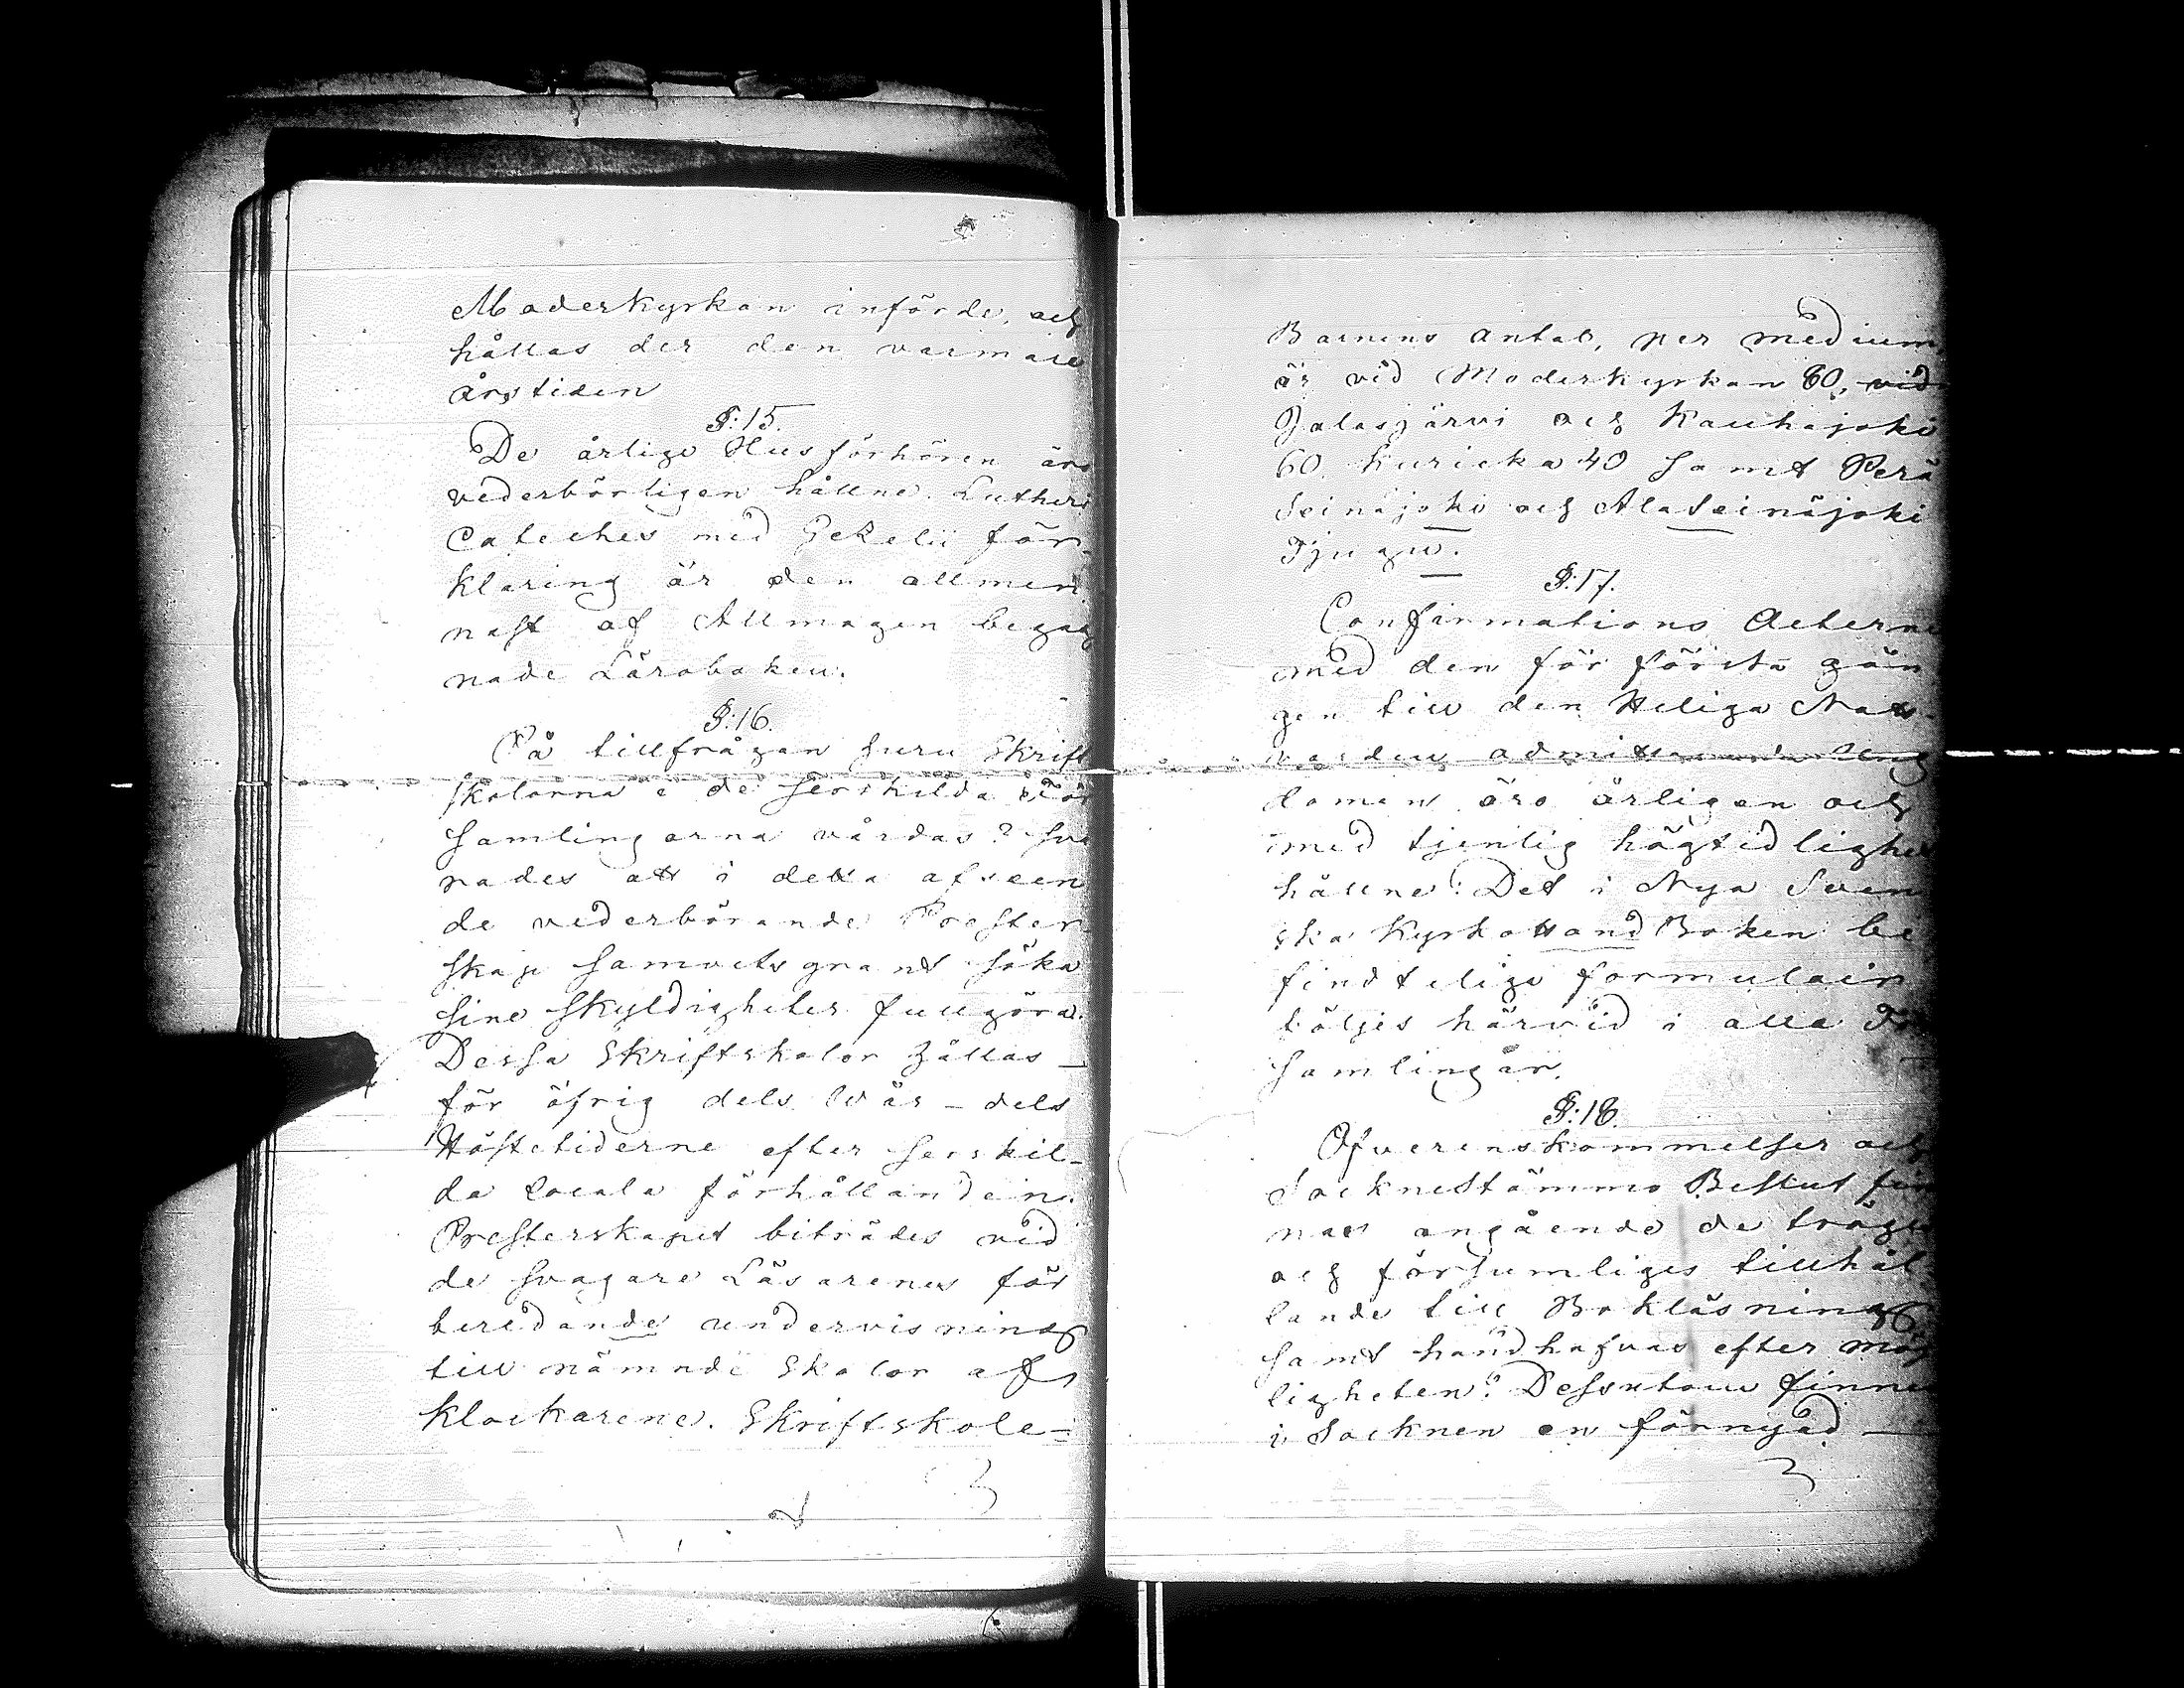 Moderkyrkan införde, och
hållas der den varmare
årstiden
§:15.
De årlige Husförhören äro
vederbörligen hållne. Lutheri
Cateches med Gezelii för-
klaring är den allmen
nast af Allmogen begag
nade Läroboken.
§:16.
På tillfrågan huru Skrift
skolorna i de serskilda För
samlingarna vårdas? sva
rades att i detta afseen
de vederbörande Prester
skap samvetsgrant söka
sine skyldigheter fullgöra.
Dessa Skriftskolor hållas
för öfrig dels Wår- dels
Höstetiderne efter serskil-
da locala förhållanden.
Presterskapet biträdes vid
de svagare Läsarenes för
beredande undervisning
till nämnde Skolor af
Klockarene. Skriftskole-
Barnens antal, per medium,
är vid Moderkyrkan 80, vid
Jalasjärvi och Kauhajoki
60. Kuricka 40 samt Perä
Seinäjoki och AlaSeinäjoki
Tjugu.
§:17.
Confirmations Acterne
med den för första gån
gen till den Heliga Natt-
varden admitterade Ung
domen äro årligen och
med tjenlig högtidlighet
hållne: Det i Nya Sven
ska KyrkoHandBoken be
findtelige formulair
följes härvid i alla För
samlingar.
§:18.
Öfverenskommelser och
Socknestämmo Beslut fin
nas angående de tröge
och försumliges tillhål
lande till Bokläsning
samt handhafvas efter möj
ligheten: Dessutom finnes
i Socknen en förnyad